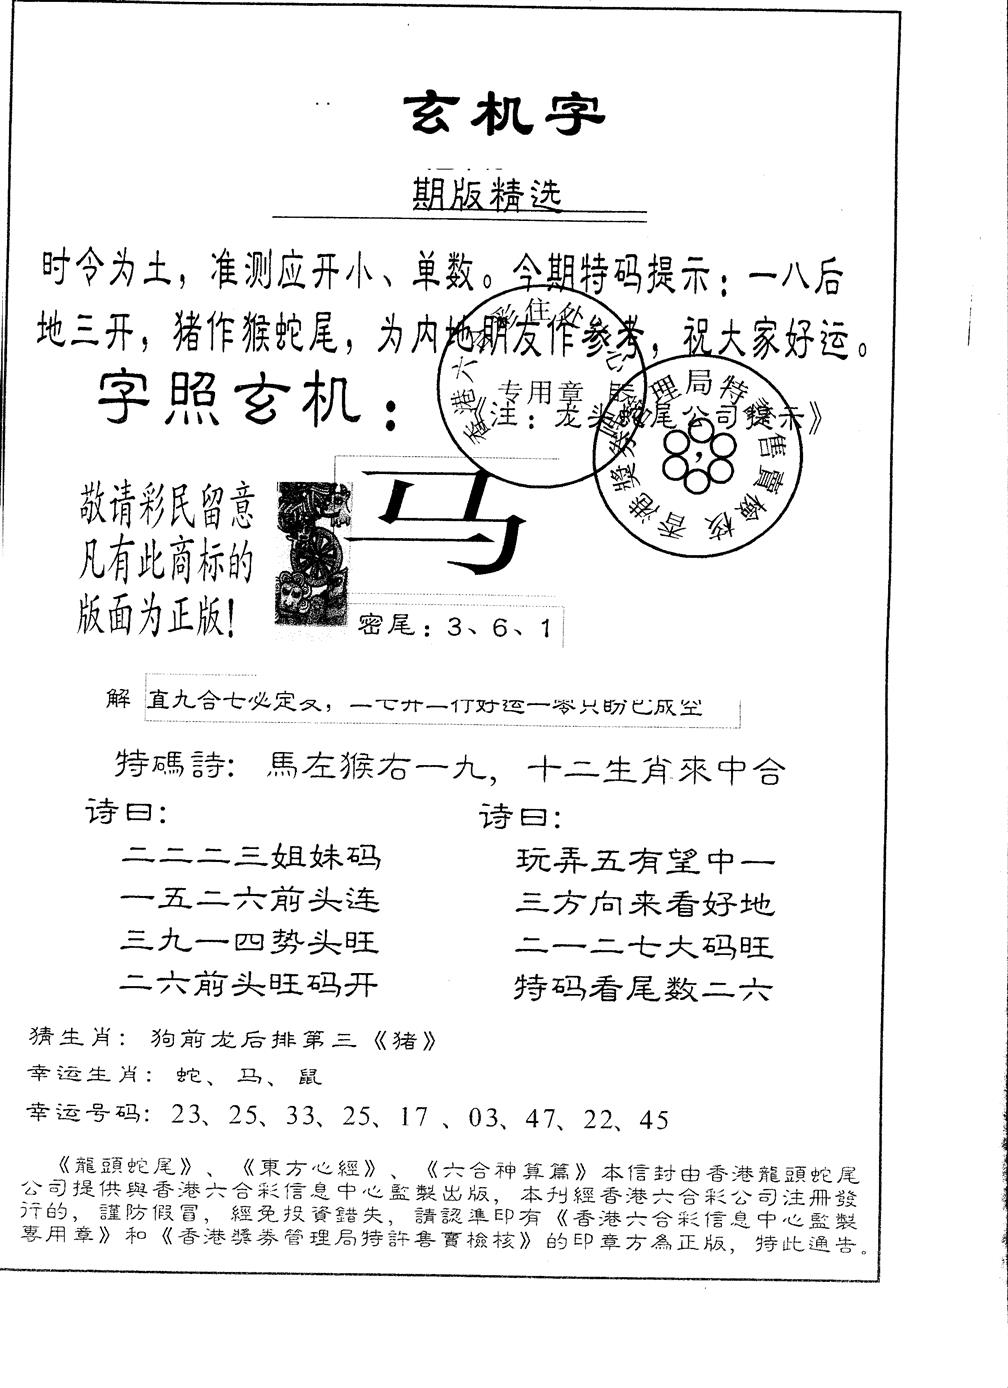 玄机字
期版精选
时令为土，准测应开小、单数。今期特码提示：一八后
地三开，猪作猴蛇尾，为内地朋友作参考，祝大家好运。
字照玄机：
《注：龙头蛇尾公司提示》
专用章
香港獎券管理局特許售賣檢核
敬请彩民留意
凡有此商标的
版面为正版！
马
密尾：3、6、1
解 直九合七必定发，二七开二行好运一零只盼已成空
特碼詩：馬左猴右一九，十二生肖來中合
诗曰：
二二二三姐妹码
一五二六前头连
三九一四势头旺
二六前头旺码开
诗曰：
玩弄五有望中一
三方向来看好地
二一二七大码旺
特码看尾数二六
猜生肖：狗前龙后排第三《猪》
幸运生肖：蛇、马、鼠
幸运号码：23、25、33、25、17、03、47、22、45
《龍頭蛇尾》、《東方心經》、《六合神算篇》本信封由香港龍頭蛇尾
公司提供與香港六合彩信息中心監製出版，本刊經香港六合彩公司注冊發
行的，謹防假冒，經免投資錯失，請認準印有《香港六合彩信息中心監製
專用章》和《香港獎券管理局特許售賣檢核》的印章方為正版，特此通告。